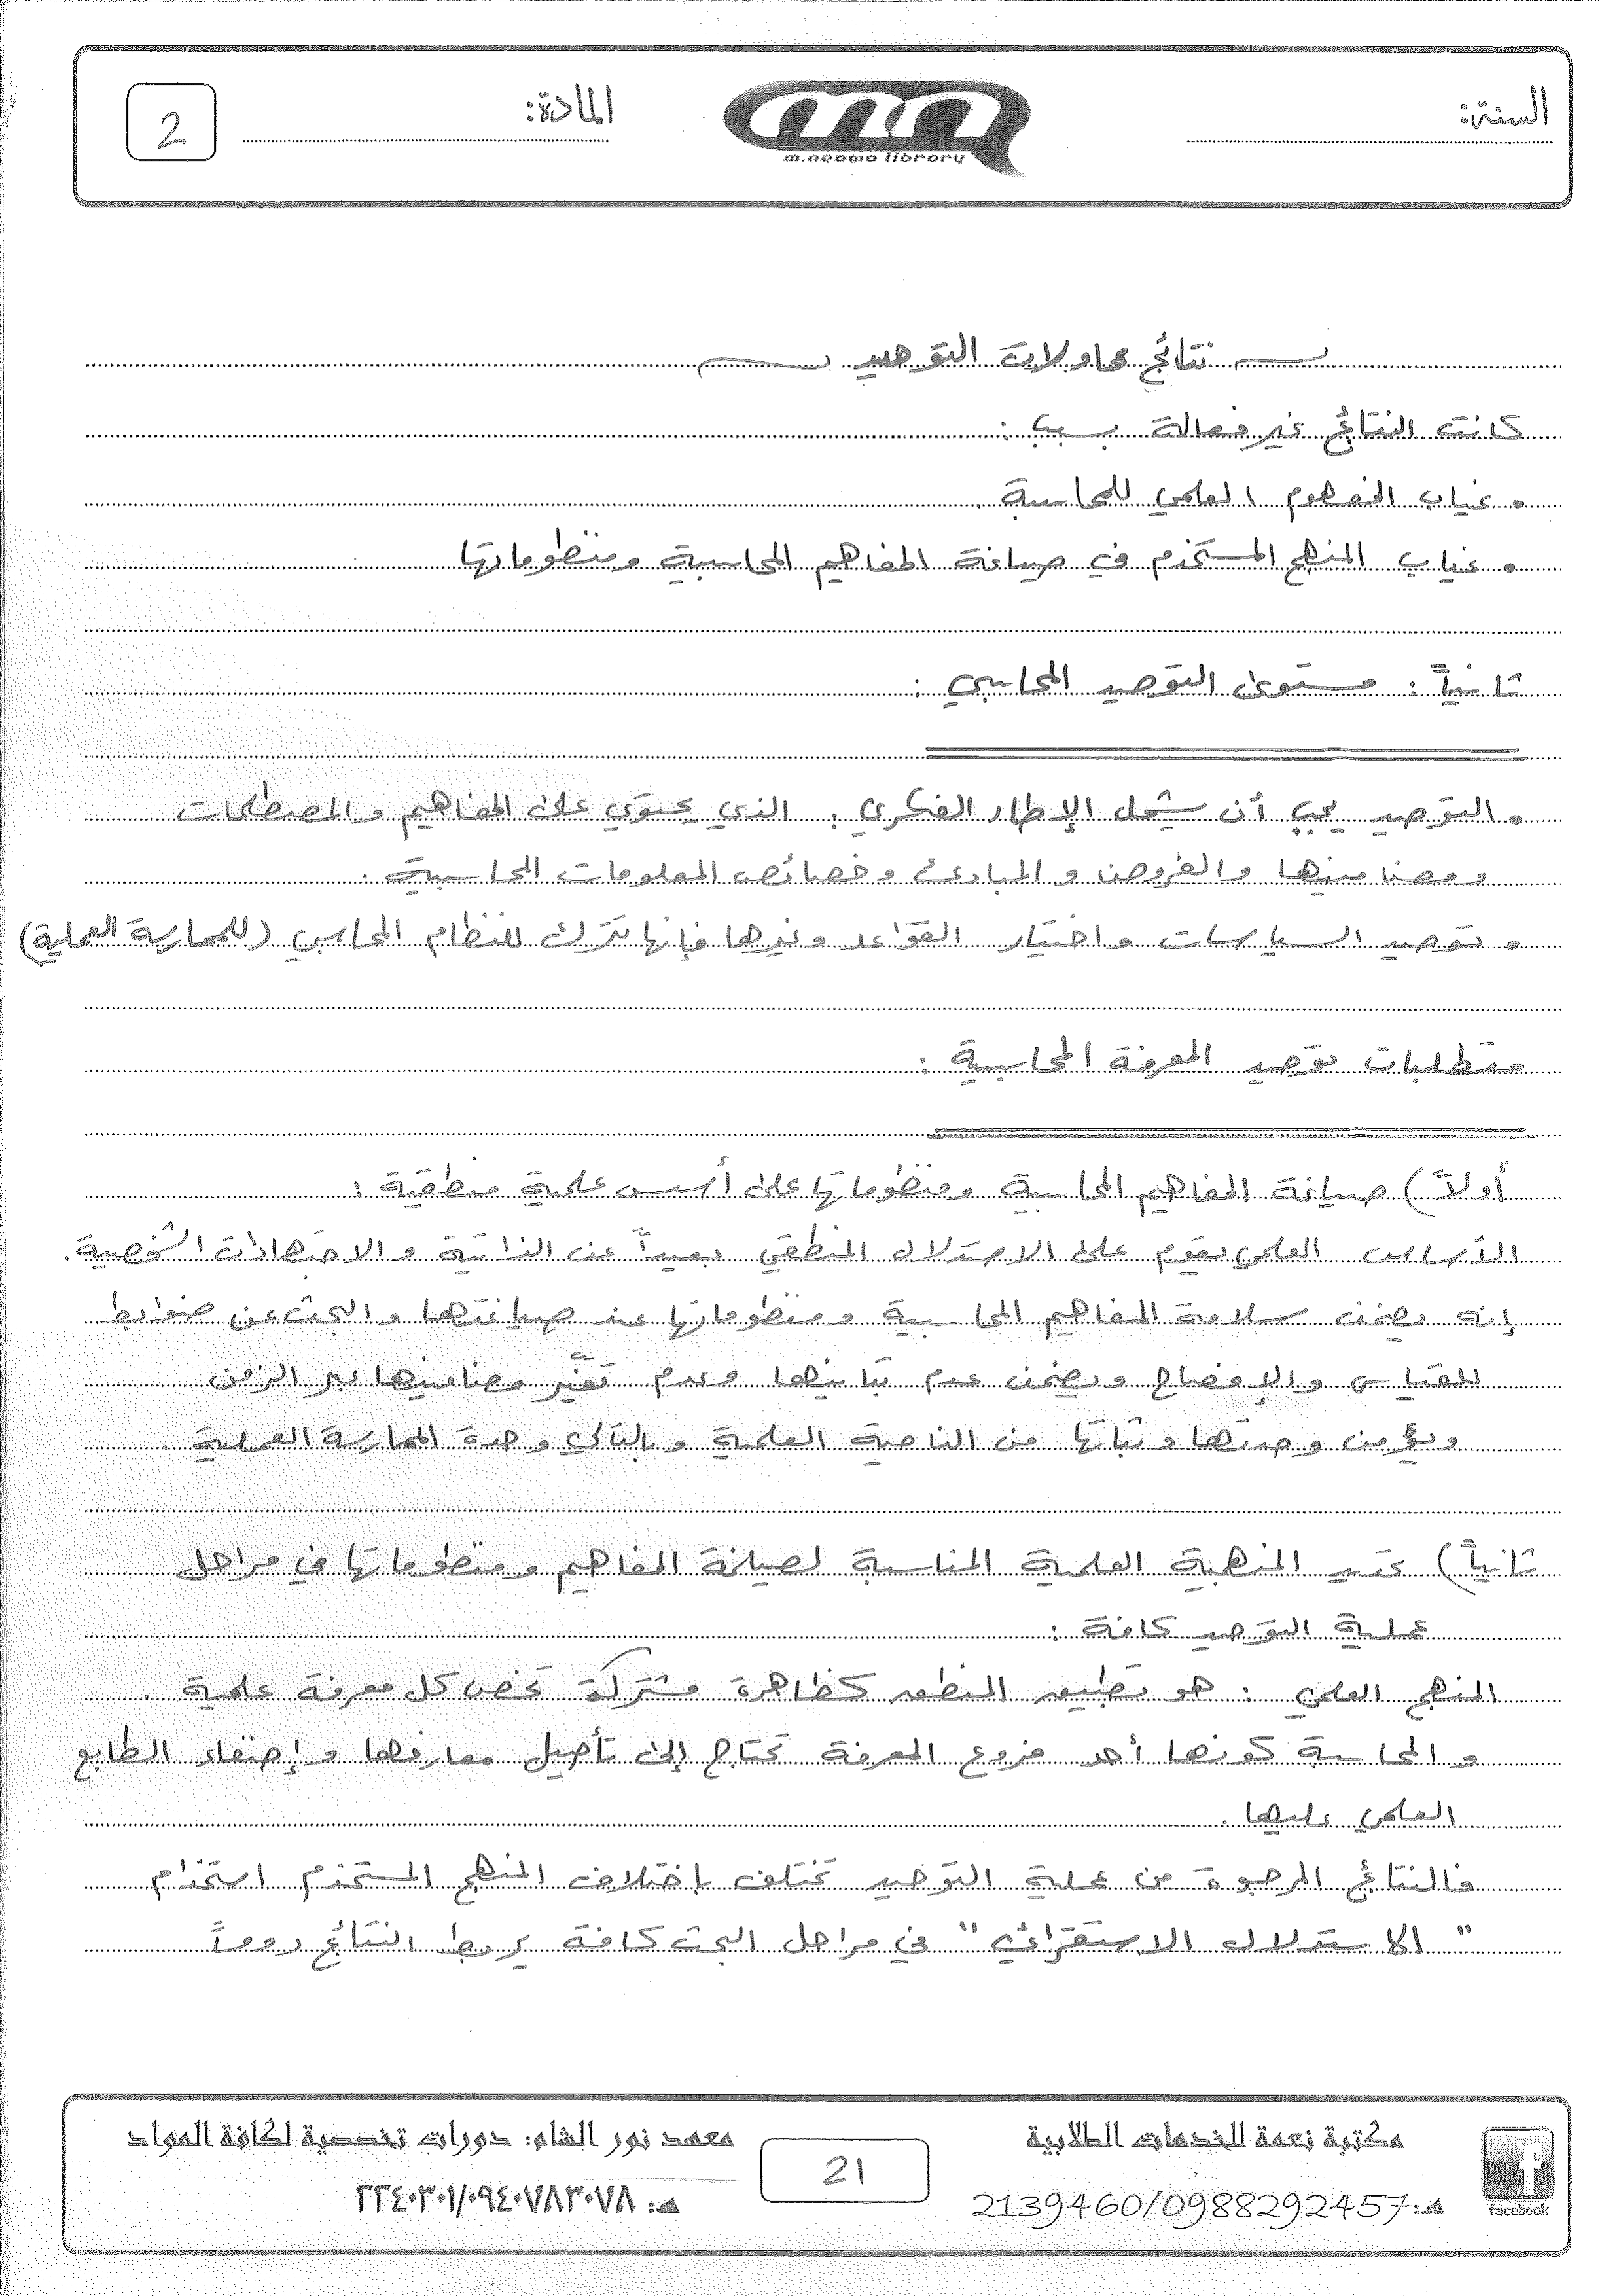 السنة:
m.neama library
المادة:
2
نتائج محاولات التوحيد
كانت النتائج غير فعالة بسبب :
• غياب المفهوم العلمي للمحاسبة .
• غياب المنهج المستخدم في صياغة المفاهيم المحاسبية ومنظوماتها
ثانياً : مستوى التوحيد المحاسبي :
• التوحيد يجب أن يشمل الإطار الفكري : الذي يحتوي على المفاهيم والمصطلحات
ومضامينها والفروض والمبادئ وخصائص المعلومات المحاسبية .
• توحيد السياسات واختيار القواعد وغيرها فإنها تترك للنظام المحاسبي (للممارسة العملية)
متطلبات توحيد المعرفة المحاسبية :
أولاً) صياغة المفاهيم المحاسبية ومنظوماتها على أسس علمية منطقية :
الأساس العلمي يقوم على الاستدلال المنطقي بعيداً عن الذاتية والاجتهادات الشخصية .
إنه يضمن سلامة المفاهيم المحاسبية ومنظوماتها عند صياغتها والبحث عن ضوابط
للقياس والإفصاح ويضمن عدم تباينها وعدم تغيّر مضامينها عبر الزمن
ويؤمن وحدتها وثباتها من الناحية العلمية وبالتالي وحدة الممارسة العملية .
ثانياً) تحديد المنهجية العلمية المناسبة لصياغة المفاهيم ومنظوماتها في مراحل
عملية التوحيد كافة :
المنهج العلمي : هو تطبيق المنطق كظاهرة مشتركة تخص كل معرفة علمية .
والمحاسبة كونها أحد فروع المعرفة تحتاج إلى تأصيل معارفها وإضفاء الطابع
العلمي عليها .
فالنتائج المرجوة من عملية التوحيد تختلف باختلاف المنهج المستخدم استخدام
" الاستدلال الاستقرائي " في مراحل البحث كافة يربط النتائج دوماً
facebook
مكتبة نعمة للخدمات الطلابية
هـ: 2139460/0988292457
21
معهد نور الشام: دورات تخصصية لكافة المواد
هـ: ٢٢٤٠٣٠١/٠٩٤٠٧٨٣٠٧٨